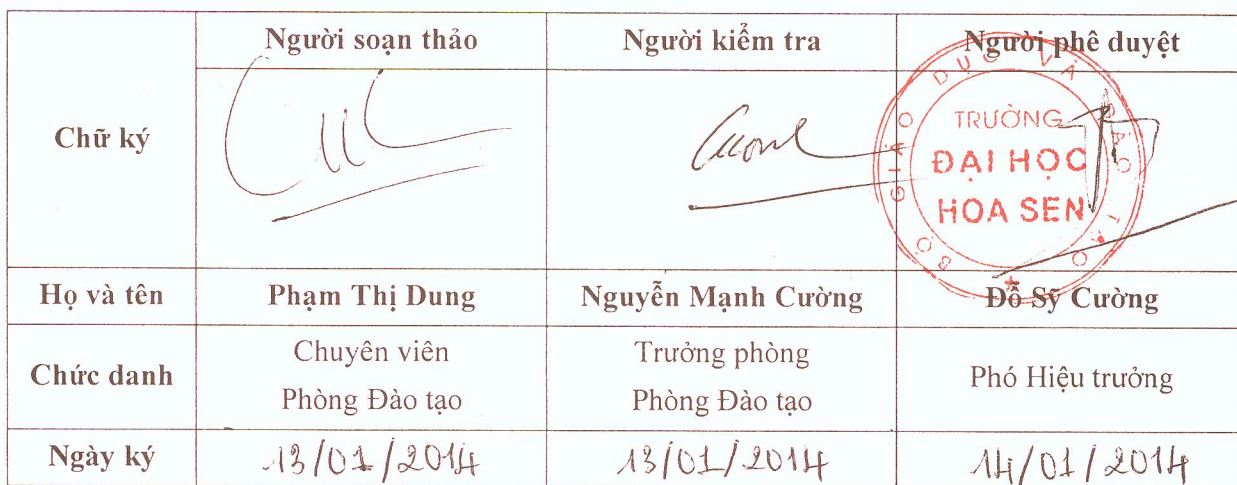 Người soạn thảo Người kiểm tra Người phê duyệt
Chữ ký
Cuong
BỘ GIÁO DỤC VÀ ĐÀO TẠO
TRƯỜNG
ĐẠI HỌC
HOA SEN
Họ và tên Phạm Thị Dung Nguyễn Mạnh Cường Đỗ Sỹ Cường
Chức danh Chuyên viên Trưởng phòng Phó Hiệu trưởng
Phòng Đào tạo Phòng Đào tạo
Ngày ký 13/01/2014 13/01/2014 14/01/2014